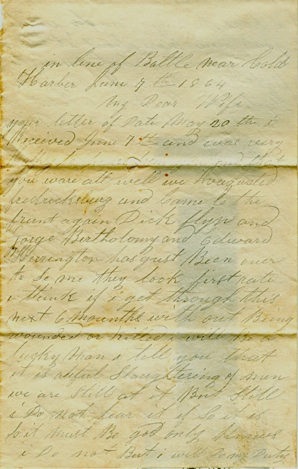 in line of Battle near Cold
Harbor June 7th 1864
My Dear Wife
your letter of Date May 20 th i
Received June 7th and was very
you ware all well we Evaquated
and came to the
frunt again Dick flyn and
Gorge Bartholomy and Edward
Herrington has just Been over
to se me they look first rate
i think if i get through this
next 6 mounths with out Being
wounded or killed i will be a
lucky man i tell you that
it is awful Slaughtering of men
we are Still at it But Still
i Do not fear it if So it is
So it must Be god only knows
i Do not But i will Do my Duty